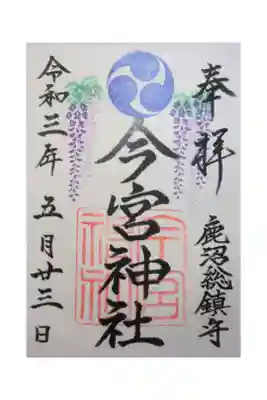 奉拝
鹿沼総鎮守
今宮神社
令和三年 五月廿三日